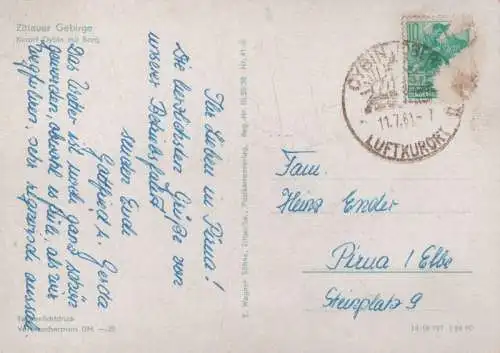 Zittauer Gebirge
Kurort Oybin mit Berg
Ihr Lieben in Pirna!
Die herzlichsten Grüße von
unserer Betriebsfahrt
senden Euch
Gottfried u. Gerda
Das Wetter ist uns ganz schön
geworden, obwohl es früh, als wir
wegfuhren, sehr regnerisch aussah.
Verbraucherpreis DM —,20
E. Wagner Söhne, Zittau/Sa., Postkartenverlag, Reg.-Nr.
OYBIN
11.7.61
LUFTKURORT
Fam.
Heinz Ender
Pirna / Elbe
Steinplatz 9